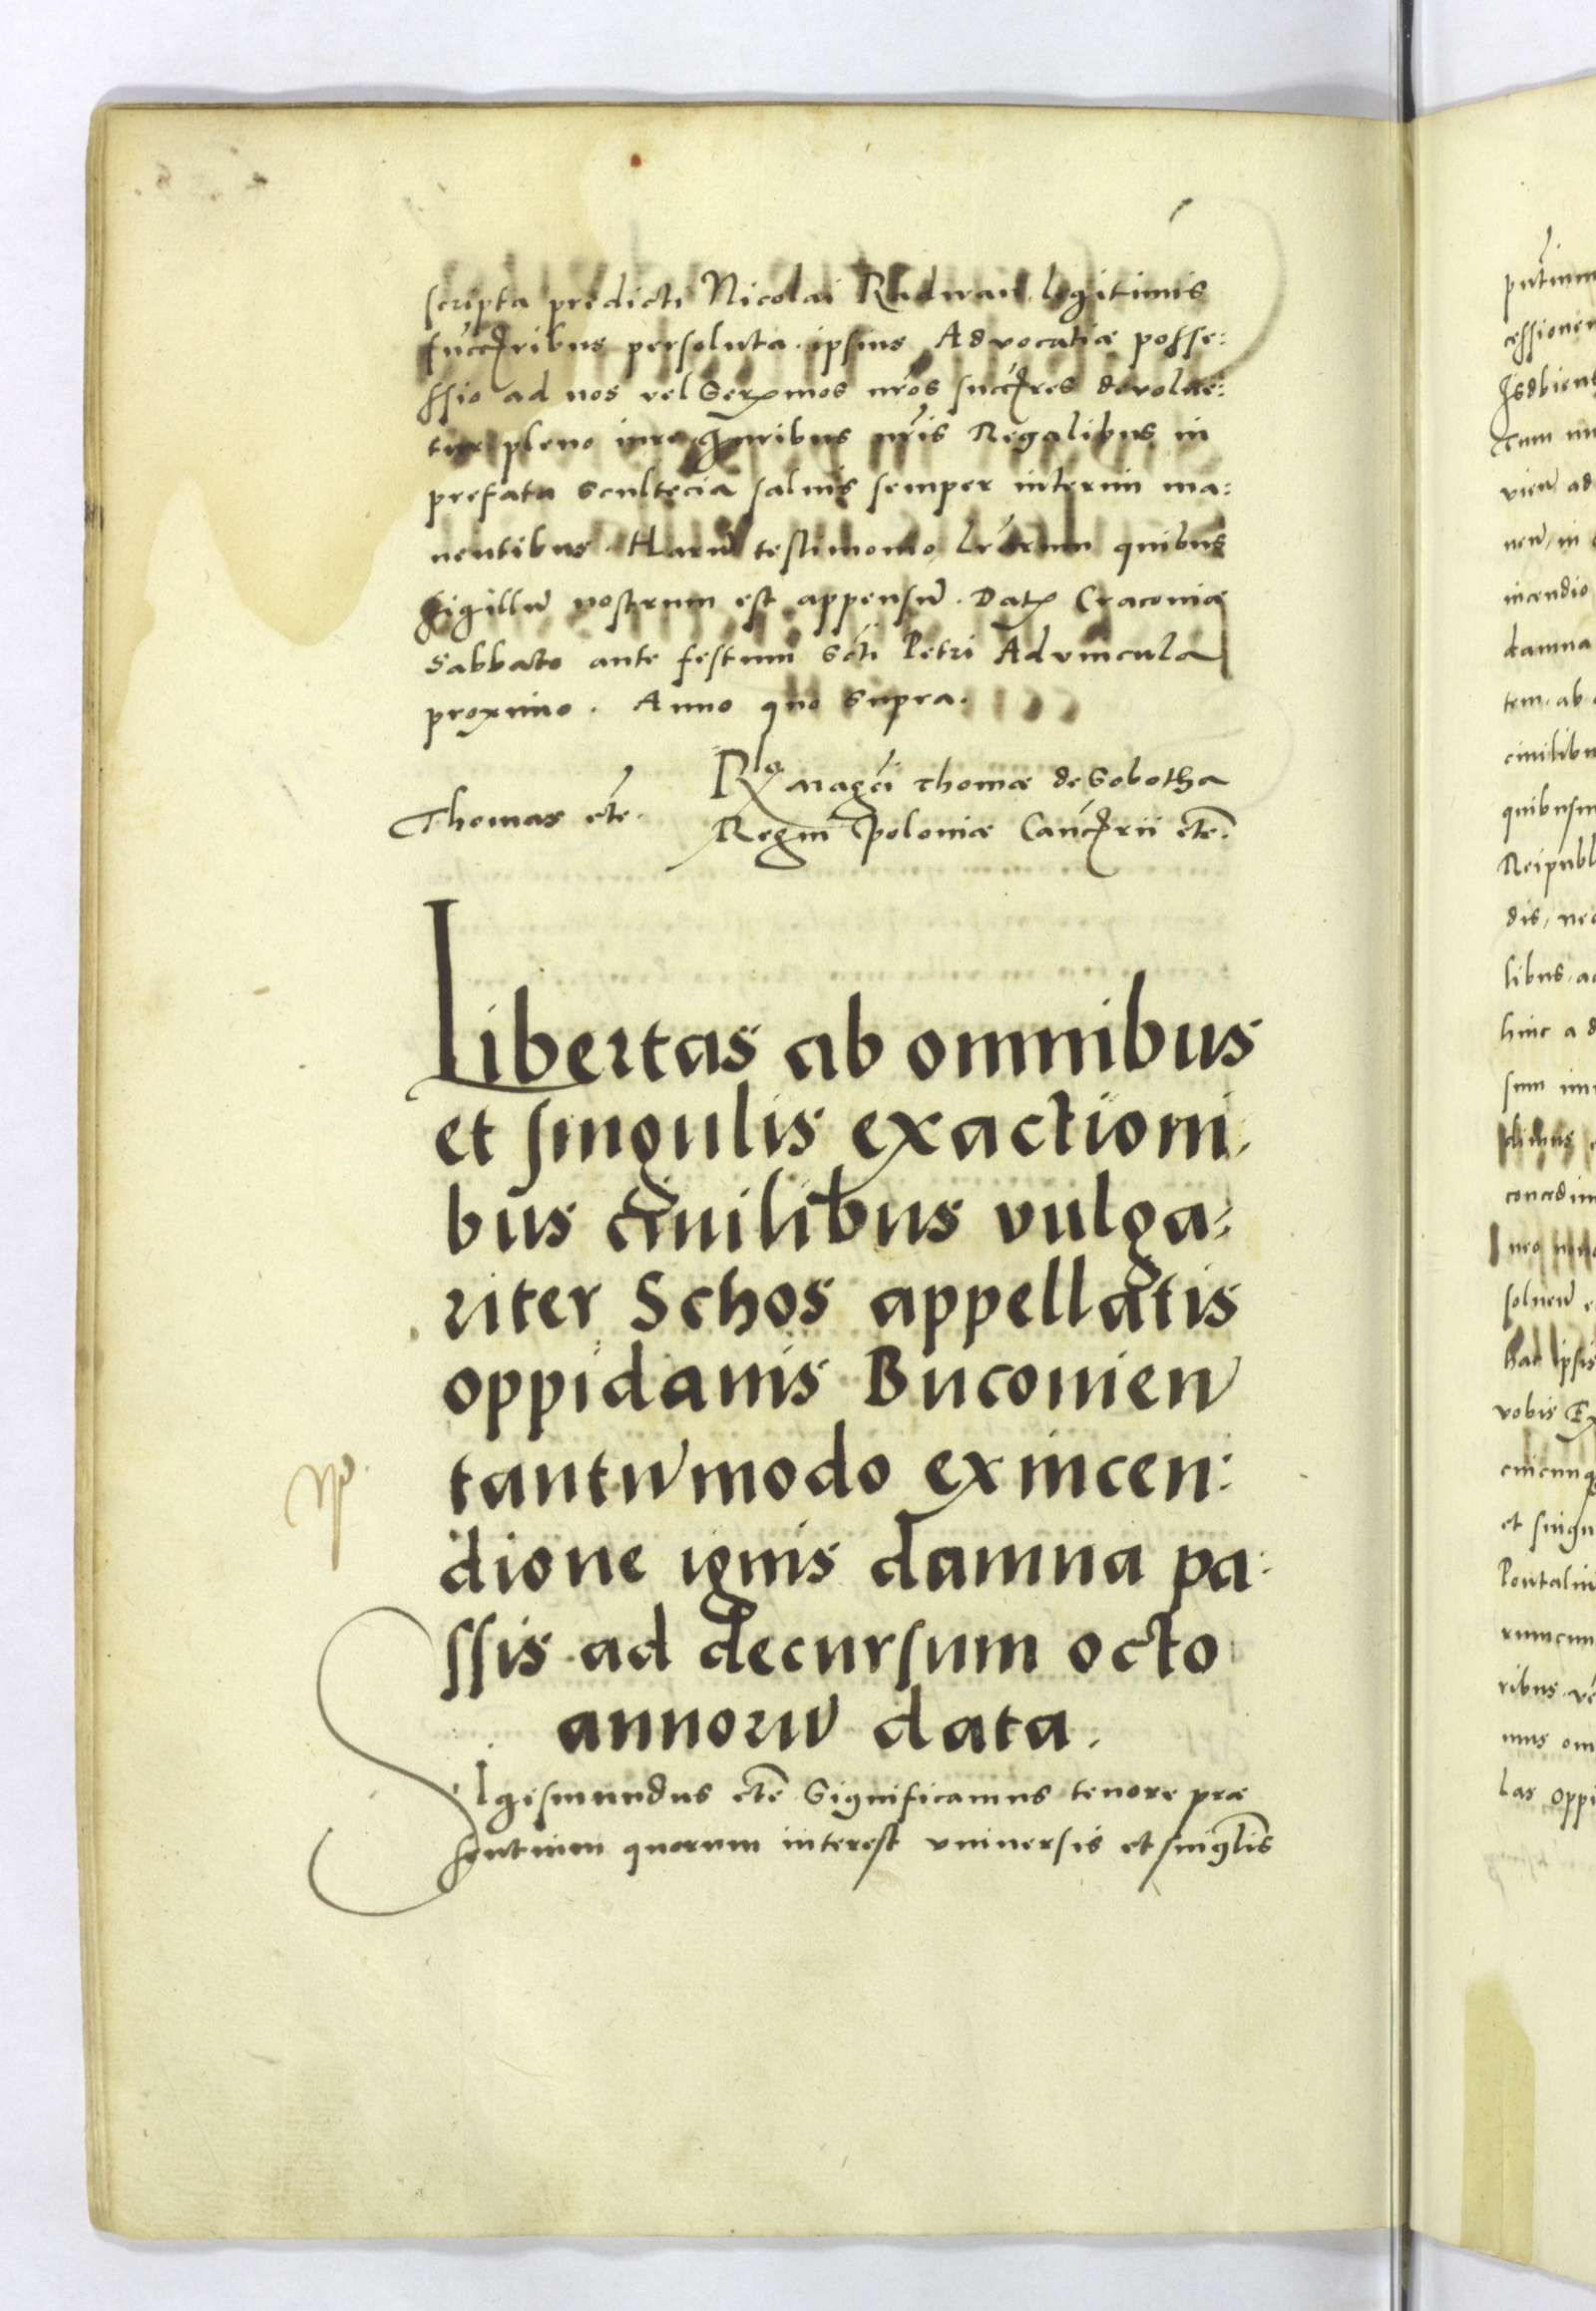 scripta predicti Nicolai Radwan legitimis
succribus persoluta ipsius Advocatiæ possse:
ssio ad nos vel Sermos nros succres devolve:
tur pleno iure Iuribus nris Regalibus in
prefata Scultecia salvis semper interim ma:
nentibus. Harum testimonio lrarum quibus
sigillum nostrum est appensum. Datum Cracoviæ
Sabbato ante festum Scti Petri Advincula
proximo. Anno quo supra.
Thomas etc.
Ro Magci Thomæ de Sobotha
Regni Poloniæ Cancrii etc.
Libertas ab omnibus
et singulis exactioni:
bus civilibus vulga:
riter Schos appellatis
oppidanis Buconien
tantummodo ex incen:
dione ignis damna pa:
ssis ad decursum octo
annorum data.
Sigismundus etc Significamus tenore præ
sentium quorum interest universis et singlis
putium
cessionem
cum
vien ad
nen, in
incendio
damna
tem. ab
civilibus
Reipubl
dis, nec
libus. ac
hinc a d
sum
concedim
solven
hac ipsis
vobis
cuicunq
et singu
ribus
mus om
las oppi